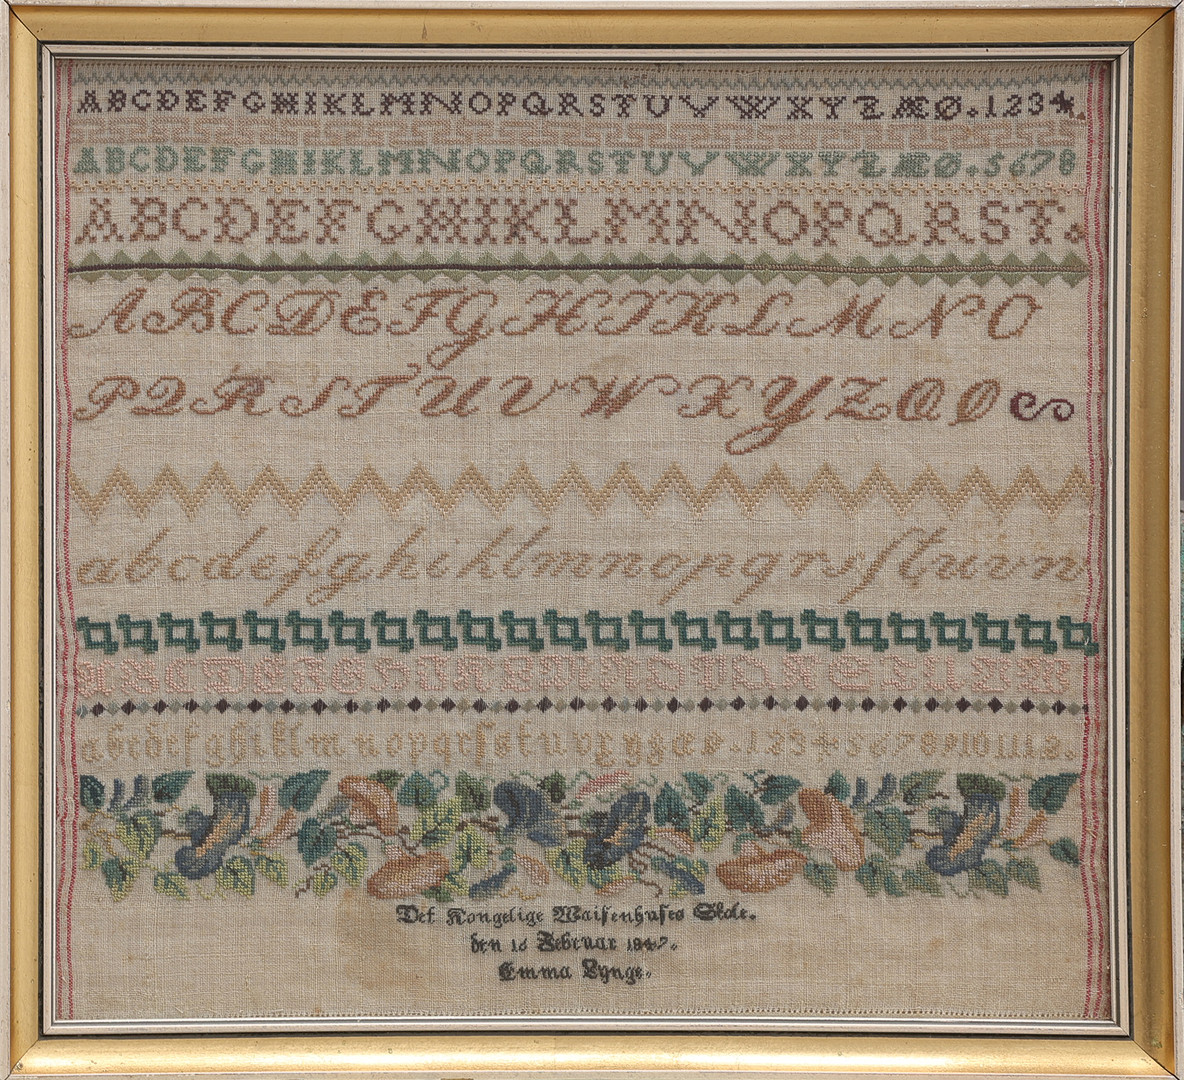 ABCDEFGHIKLMNOPQRSTUVWXYZÆØ.1234
ABCDEFGHIKLMNOPQRSTUVWXYZÆØ.5678
ABCDEFGHIKLMNOPQRST
ABCDEFGHIKLMNO
PQRSTUVWXYZ
abcdefghiklmnopqrsſtuvw
abcdefghiklmnopqrſstuvxyzæø.123456789101112.
Det Kongelige Waiſenhuſes Skole.
den 16 Februar 1847.
Emma Lynge.